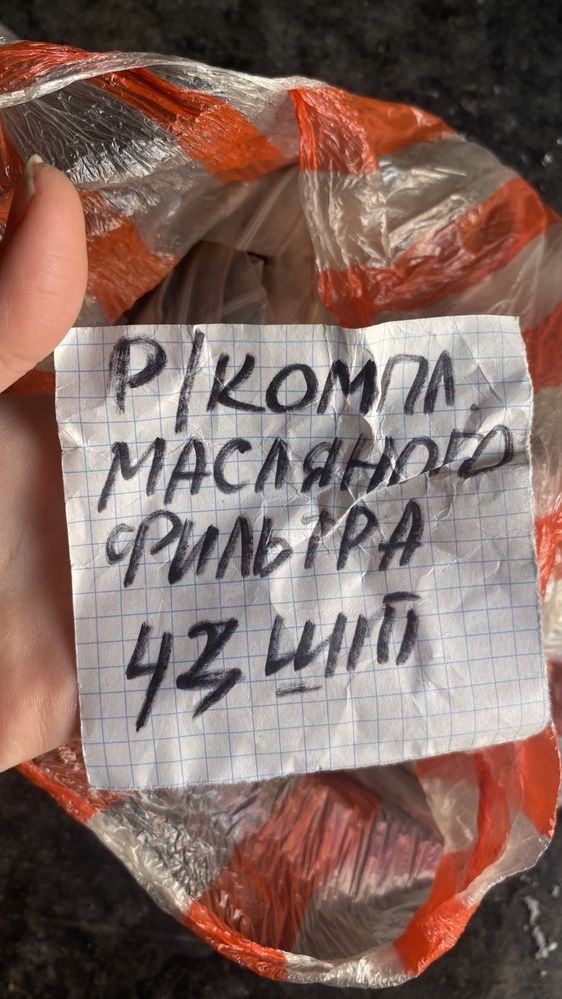 Р/КОМПЛ.
МАСЛЯНОГО
ФИЛЬТРА
ШТ